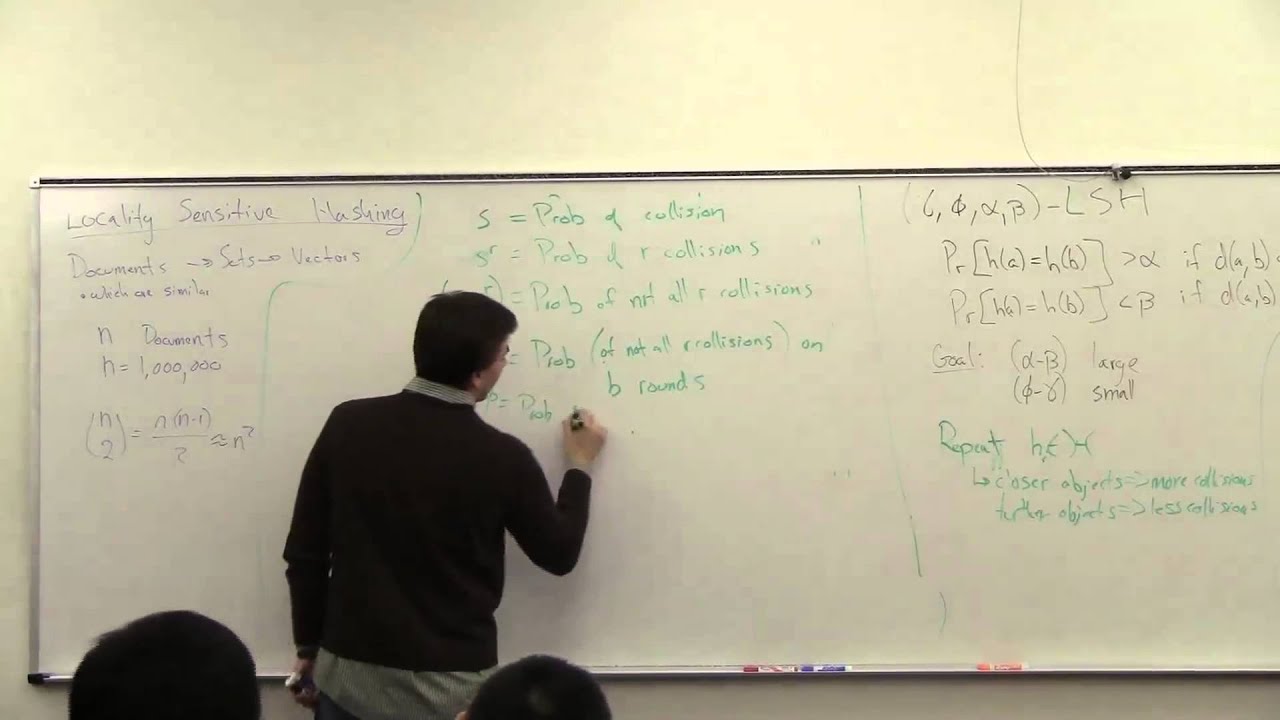 Locality Sensitive Hashing
Documents → Sets → Vectors
• which are similar
n Documents
n = 1,000,000
(n 2) = n(n-1)/2 ≈ n²
s = Prob of collision
sʳ = Prob of r collisions
r) = Prob of not all r collisions
= Prob (of not all r collisions) on
b rounds
= Prob
(γ, ϕ, α, β) - LSH
Pr[h(a) = h(b)] > α if d(a,b)
Pr[h(a) = h(b)] < β if d(a,b)
Goal: (α-β) large
(ϕ-γ) small
Repeat h ∈ H
↳ closer objects => more collisions
further objects => less collisions